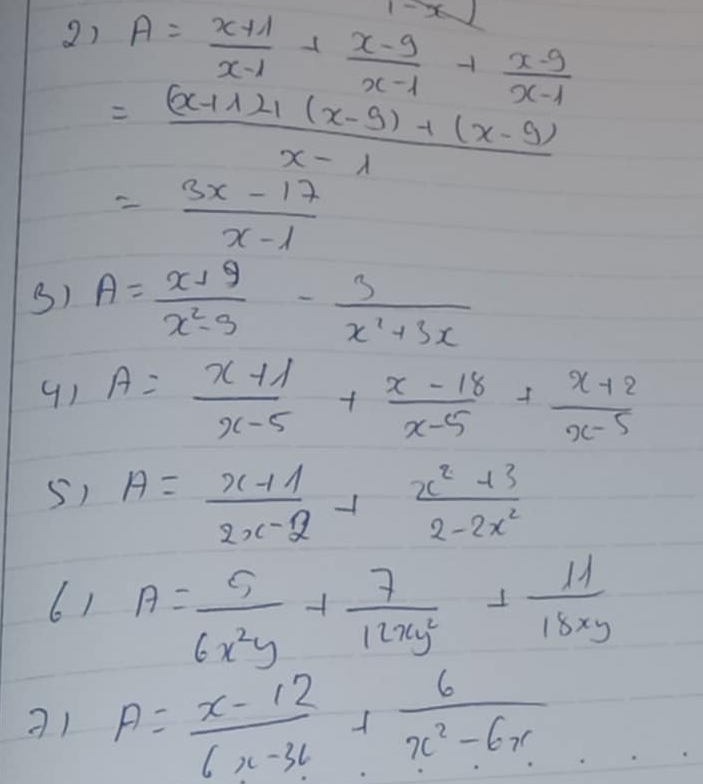 1-x
2) A = x+1/x-1 + x-9/x-1 + x-9/x-1
= (x+1)+(x-9)+(x-9)/x-1
= 3x-17/x-1
3) A = x+9/x²-9 - 3/x²+3x
4) A = x+1/x-5 + x-18/x-5 + x+2/x-5
5) A = x+1/2x-2 + x²+3/2-2x²
6) A = 5/6x²y + 7/12xy² + 11/18xy
7) A = x-12/6x-36 + 6/x²-6x